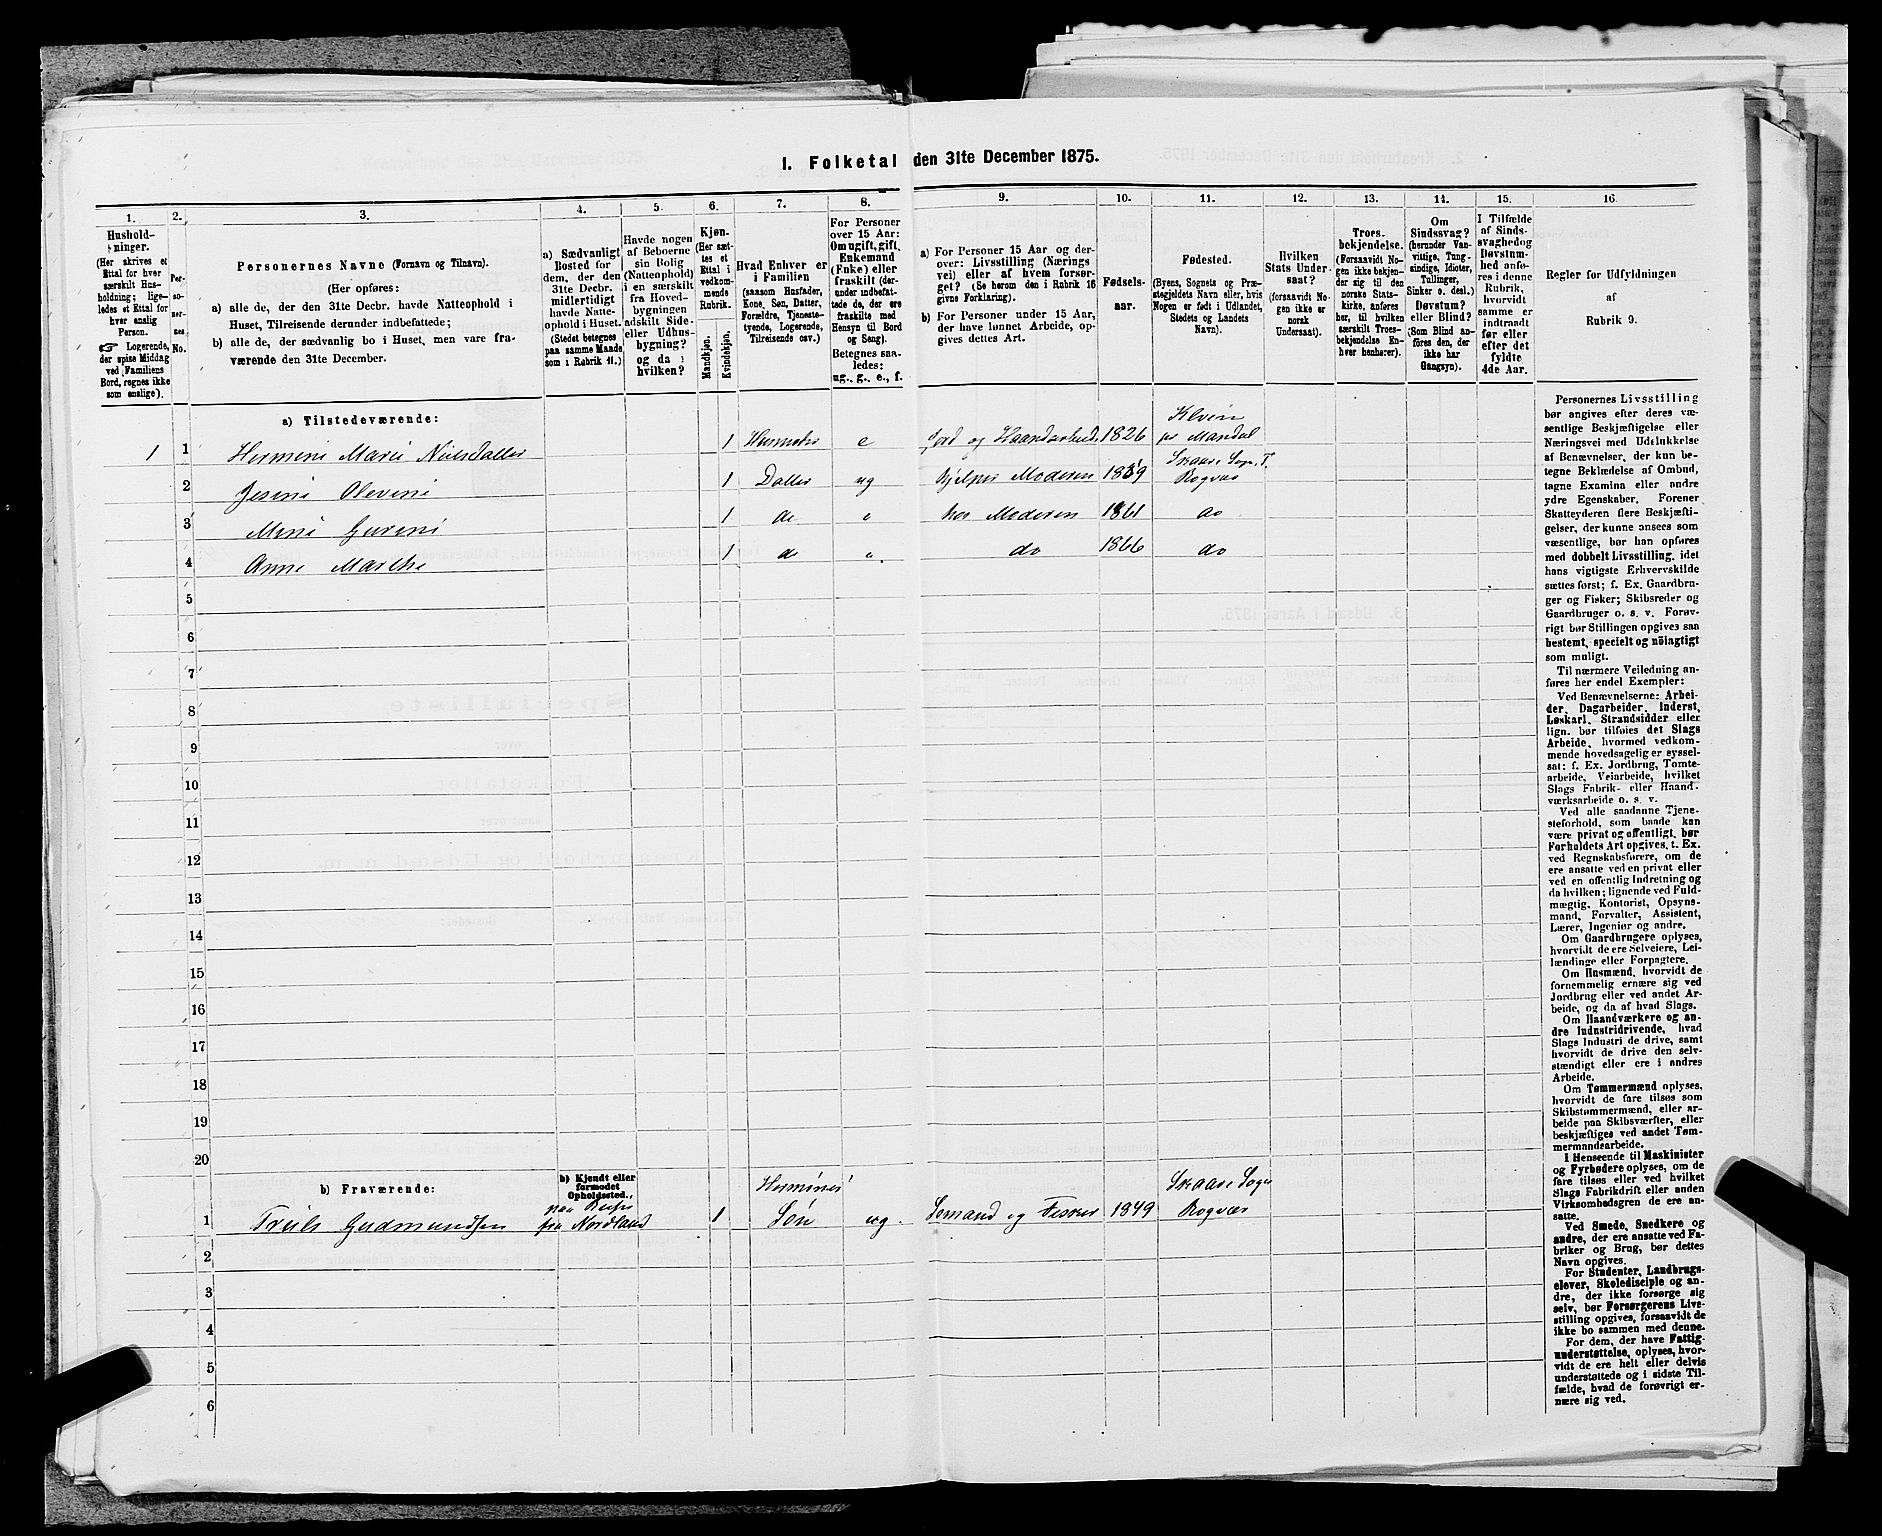 1. Folketal den 31te December 1875.
1.
Hushold-
ninger.
(Her skrives et
Ettal for hver
særskilt Hus-
holdning; lige-
ledes et Ettal for
hver enslig
Person.
☞ Logerende,
der spise Middag
ved Familiens
Bord, regnes ikke
som enslige).
2.
Per-
so-
ner-
nes
No.
3.
Personernes Navne (Fornavn og Tilnavn).
(Her opføres:
a) alle de, der den 31te Decbr. havde Natteophold i
Huset, Tilreisende derunder indbefattede;
b) alle de, der sædvanlig bo i Huset, men vare fra-
værende den 31te December.
4.
a) Sædvanligt
Bosted for
dem, der den
31te Decbr.
midlertidigt
havde Natte-
ophold i Huset.
(Stedet betegnes
paa samme Maade
som i Rubrik 11.)
5.
Havde nogen
af Beboerne
sin Bolig
(Natteophold)
i en særskilt
fra Hoved-
bygningen
adskilt Side-
eller Udhus-
bygning?
og da i
hvilken?
6.
Kjøn.
(Her sæt-
tes et
Ettal i
vedkom-
mende
Rubrik.
Mandkjøn.
Kvindekjøn.
7.
Hvad Enhver er
i Familien
(saasom Husfader,
Kone, Søn, Datter,
Forældre, Tjeneste-
tyende, Logerende,
Tilreisende osv.)
8.
For Personer
over 15 Aar:
Om ugift, gift,
Enkemand
(Enke) eller
fraskilt (der-
under indbefat-
tede de, der ere
fraskilte med
Hensyn til Bord
og Seng).
Betegnes saa-
ledes:
ug., g., e., f.
9.
a) For Personer 15 Aar og der-
over: Livsstilling (Nærings
vei) eller af hvem forsør-
get? (Se herom den i Rubrik 16
givne Forklaring).
b) For Personer under 15 Aar,
der have lønnet Arbeide, op-
gives dettes Art.
10.
Fødsels-
aar.
11.
Fødested.
(Byens, Sognets og Præ-
stegjeldets Navn eller, hvis
Nogen er født i Udlandet,
Stedets og Landets
Navn).
12.
Hvilken
Stats Under-
saat?
(forsaavidt No-
gen ikke er
norsk
Undersaat).
13.
Troes-
bekjendelse.
(Forsaavidt No-
gen ikke bekjen-
der sig til den
norske Stats-
kirke, anføres
her, til hvilken
særskilt Troes-
bekjendelse En-
hver henhører).
14.
Om
Sindssvag?
(herunder Van-
vittige, Tung-
sindige, Idioter,
Tullinger,
Sinker o. desl.)
Døvstum?
eller Blind?
(Som Blind an-
føres den, der
ikke har
Gangsyn).
15.
I Tilfælde
af Sinds-
svaghed og
Døvstum-
hed anfø-
res i denne
Rubrik,
hvorvidt
samme er
indtraadt
før eller
efter det
fyldte
4de Aar.
16
Regler for Udfyldningen
af
Rubrik 9.
a) Tilstedeværende:
1 1 Hermine Marie Nielsdatter 1 Husmoder e Jord og Haandarbeid. 1826 Klvin pr Mandal
2 Jesine Olevine 1 Datter ug hjelper Moderen 1859 Skaare Sogn, T. Rogvær
3 Mine Gurine 1 do hos Moderen 1861 do
4 Anne Marthe 1 do do 1866 do
5
6
7
8
9
10
11
12
13
14
15
16
17
18
19
20
b) Fraværende:
b) Kjendt eller
formodet
Opholdssted.
1 Truls Gudmundsen paa Reise fra Nordland 1 Hermines Søn ug. Sømand og Fisker 1849 Skaare Sogn Rogvær
2
3
4
5
6
Personernes Livsstilling
bør angives efter deres væ-
sentlige Beskjæftigelse eller
Næringsvei med Udelukkelse
af Benævnelser, der kun be-
tegne Beklædelse af Ombud,
tagne Examina eller andre
ydre Egenskaber. Forener
Skatteyderen flere Beskjæfti-
gelser, der kunne ansees som
væsentlige, bør han opføres
med dobbelt Livsstilling, idet
hans vigtigste Erhvervskilde
sættes først; f. Ex. Gaardbru-
ger og Fisker; Skibsreder og
Gaardbruger o. s. v. Forøv-
rigt bør Stillingen opgives saa
bestemt, specielt og nöiagtigt
som muligt.
Til nærmere Veiledning an-
føres her endel Exempler:
Ved Benævnelserne: Arbei-
der, Dagarbeider, Inderst,
Løskarl, Strandsidder eller
lign. bør tilføies det Slags
Arbeide, hvormed vedkom-
mende hovedsagelig er syssel-
sat: f. Ex. Jordbrug, Tomte-
arbeide, Veiarbeide, hvilket
Slags Fabrik- eller Haand-
værksarbeide o. s. v.
Ved alle saadanne Tjene-
steforhold, som baade kan
være privat og offentligt, bør
Forholdets Art opgives, f. Ex.
ved Regnskabsførere, om de
ere ansatte ved en privat eller
ved en offentlig Indretning og
da hvilken; lignende ved Fuld-
mægtig, Kontorist, Opsyns-
mand, Forvalter, Assistent,
Lærer, Ingeniør og andre.
Om Gaardbrugere oplyses,
hvorvidt de ere Selveiere, Lei-
lændinge eller Forpagtere.
Om Husmænd, hvorvidt de
fornemmelig ernære sig ved
Jordbrug eller ved andet Ar-
beide, og da af hvad Slags.
Om Haandværkere og an-
dre Industridrivende, hvad
Slags Industri de drive, samt
hvorvidt de drive den selv-
stændigt eller ere i andres
Arbeide.
Om Tømmermænd oplyses,
hvorvidt de fare tilsøs som
Skibstømmermænd, eller ar-
beide paa Skibsværfter, eller
beskjæftiges ved andet Tøm-
mermandsarbeide.
I Henseende til Maskinister
og Fyrbødere oplyses, om de
fare tilsøs eller ved hvilket
Slags Fabrikdrift eller anden
Virksomhedsgren de ere an-
satte.
Ved Smede, Snedkere og
andre, der ere ansatte ved Fa-
briker og Brug, bør dettes
Navn opgives.
For Studenter, Landbrugs-
elever, Skoledisciple og an-
dre, der ikke forsørge sig
selv, bør Forsørgerens Livs-
stilling opgives, forsaavidt de
ikke bo sammen med denne.
For dem, der have Fattig-
understøttelse, oplyses, hvor-
vidt de ere helt eller delvis
understøttede og i sidste Til-
fælde, hvad de forøvrigt er-
nære sig ved.